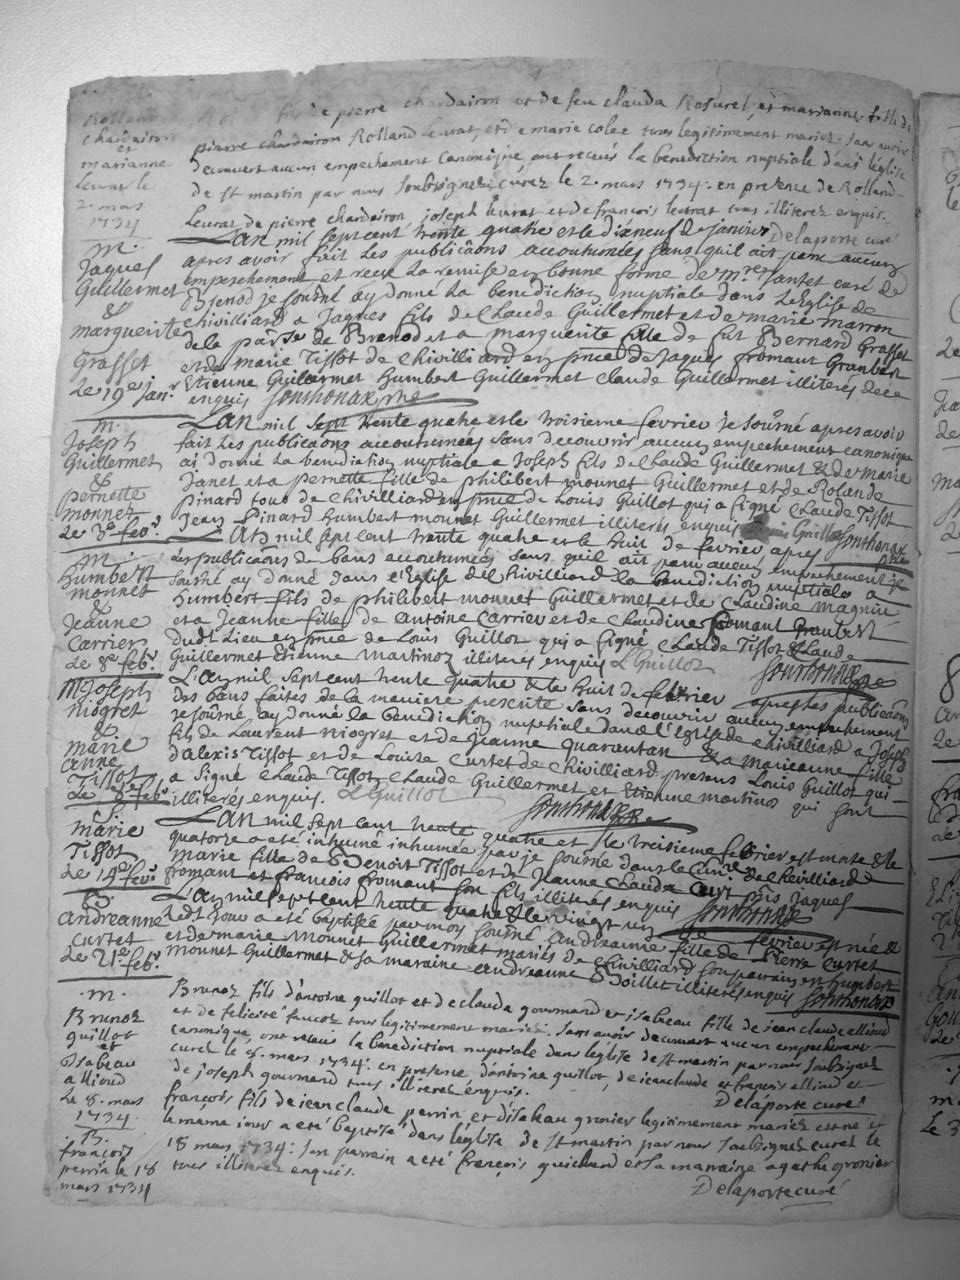 Rolland fils de pierre chardairon et de feu clauda Rosurel, et marianne fille de
chardairon
et
marianne
leurat le
2. mars
1734
pierre chardairon Rolland leurat, et de marie colée tous legitimement mariez. sans avoir
decouvert aucun empechement canonique, ont receus la benediction nuptiale dans l'église
de st martin par nous soubsignez curez le 2. mars 1734. en presence de Rolland
leurat de pierre chardairon, joseph leurat et de françois leurat tous illiterez enquis.
Delaporte curé
m.
Jaques
Guillermet
&
marguerite
Grasset
Le 19e janr
L'An mil sept cent trente quatre et le dixneuf de janvier
apres avoir fait les publicâons accoutumées sans quil ait paru aucun
empechement et reçu la remise en bonne forme de mre Jantet curé de
Brenod je soussné ay donné la benediction nuptiale dans l'eglise de
chivilliard a Jaques fils de Claude Guillermet et de marie marron
de la parse de Brenod et a marguerite fille de fut Bernard Grasset
et de marie Tissot de chivilliard en pnce de Jaques fromant Granbert
Etienne Guillermet humbert Guillermet Claude Guillermet illiterés de ce
enquis Sonthonax ptre
m.
Joseph
Guillermet
&
pernette
monnet
Le 3e febr.
L'An mil sept trente quatre et le troisieme fevrier je soussné apres avoir
fait les publicâons accoutumées sans decouvrir aucun empechement canonique
ai donné la benediction nuptiale a Joseph fils de Claude Guillermet & de marie
Janet et a pernette fille de philibert mounet Guillermet et de Rolande
Pinard tous de chivilliard en pnce de Louis Guillot qui a signé Claude Tissot
Jean Pinard humbert mounet Guillermet illiterés enquis Louis Guillot Sonthonax
ptre
m.
humbert
monnet
&
Jeanne
Carrier
Le 8e febr.
L'An mil sept cent trente quatre et le huit de fevrier apres
les publicâons de bans accoutumées sans quil ait paru aucun empechement je
soussné ay donné dans l'Eglise de chivilliard la benediction nuptiale a
humbert fils de philibert mounet Guillermet et de Claudine magnin
et a Jeanne fille de antoine Carrier et de Claudine fromant Granbert
dudt lieu en pnce de Louis Guillot qui a signé Claude Tissot Claude
Guillermet Etienne martinoz illiterés enquis L Guillot
Sonthonax
m Joseph
niogret
&
marie
anne
Tissot
Le 8e febr.
L'An mil sept cent trente quatre & le huit de febvrier apres les publicâons
des bans faites de la maniere presente sans decouvrir aucun empechement
je soussné ay donné la benediction nuptiale dans l'Eglise de chivilliard a Joseph
fils de Laurent niogret et de Jeanne quarantan & a marieanne fille
d'alexis Tissot et de Louise Curtet de chivilliard presens Louis Guillot qui
a signé Claude Tissot, Claude Guillermet et Etienne martinoz qui sont
illiterés enquis. L Guillot Sonthonax ptre
S.
marie
Tissot
Le 14e fevr
L'An mil sept cent trente quatre et le treisieme febvrier est morte & le
quatorze a été inhumé inhumée par je soussné dans le cimre de chivilliard
marie fille de Benoit Tissot et de Jeanne Clauda Curt pns Jaques
fromant et francois fromant son fils illiterés enquis Sonthonax
B.
andréanne
Curtet
Le 21e febr.
L'An mil sept cent trente quatre & le vingt un de fevrier est née &
ledt jour a été baptisée par moy soussné andréanne fille de Pierre Curtet
et de marie Mounet Guillermet mariés de chivilliard son parrain humbert
mounet Guillermet & sa maraine andreanne Joillet illiterés enquis Sonthonax
.m.
Brunoz
guillot
et
Isabeau
allioud
Le 8. mars
1734.
Brunoz fils d'antoine guillot et de clauda gourmand et isabeau fille de jean claude allioud
et de felicité faucoz tous legitimement mariez. sans avoir decouvert aucun empechement
canonique, ont receus la benediction nuptiale dans l'église de st martin par nous soubsignez
curez le 8. mars 1734. en presence d'antoine guillot, de jean claude et françois allioud et
de joseph gourmand tous illiterez enquis.
Delaporte curé
B.
françois
perrin le 18
mars 1734
françois fils de jean claude perrin et disabau gronier legitimement mariez est né et
le meme jour a été baptisé dans léglise de st martin par nous soubsignez curez le
18 mars 1734. son parrain a été françois guichard et sa marraine agathe gronier
tous illiterez enquis.
Delaporte curé